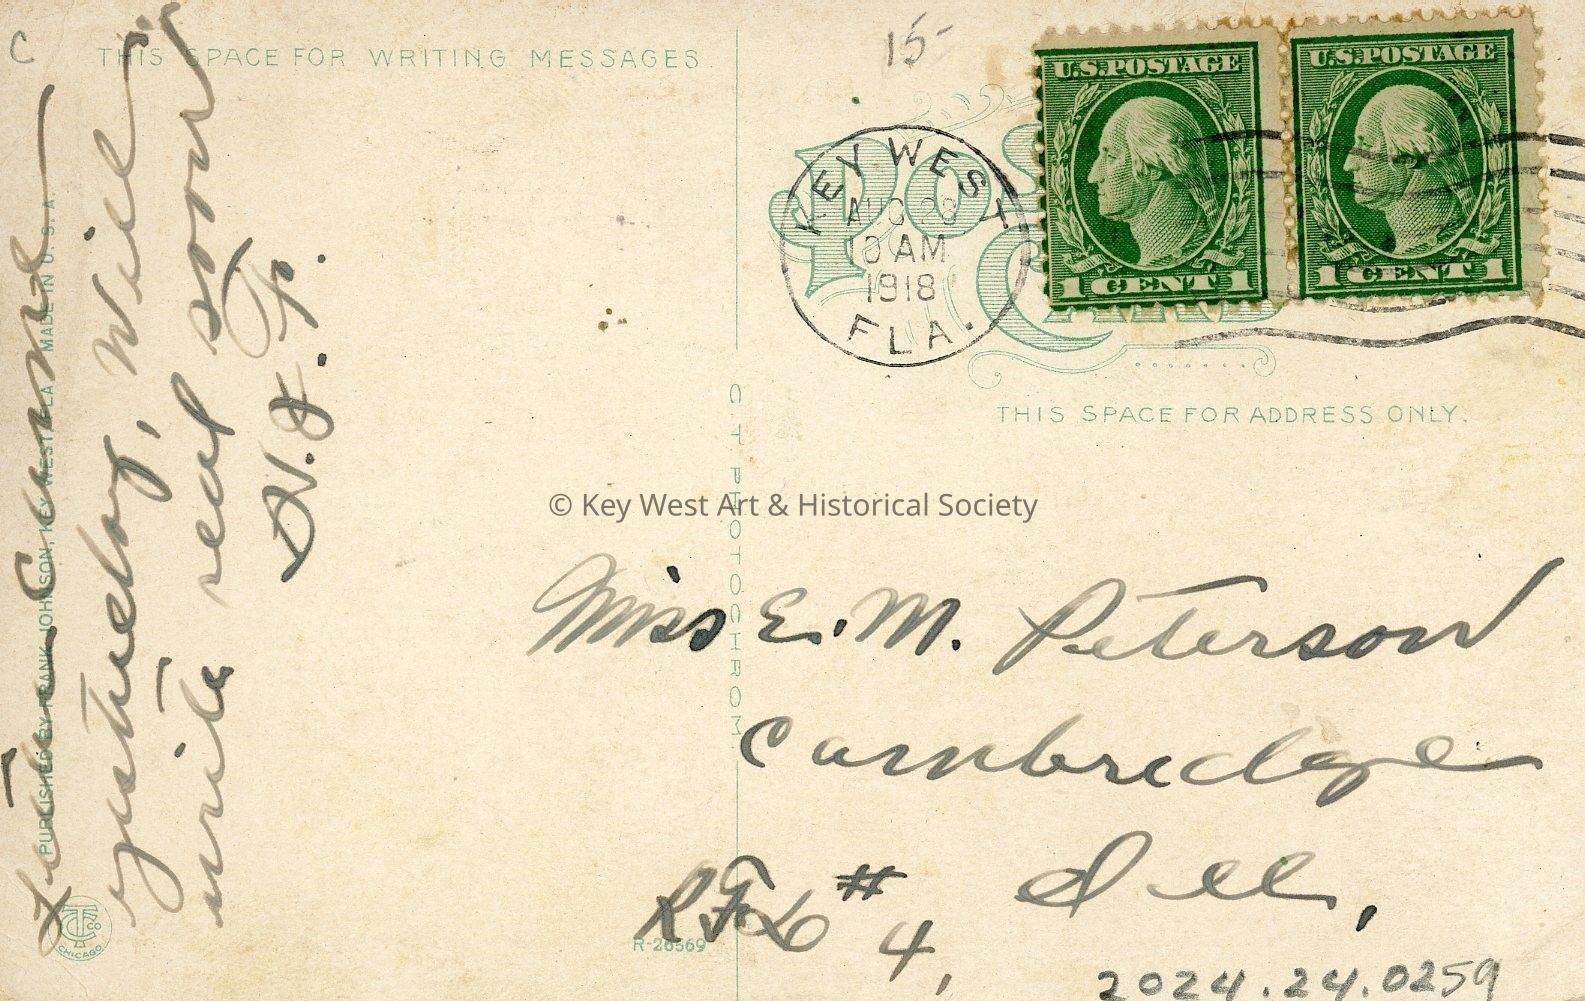 C
THIS SPACE FOR WRITING MESSAGES.
15-
U.S. POSTAGE
1 CENT 1
U.S. POSTAGE
1 CENT 1
KEY WEST
AUG 28
10 AM
1918
FLA.
THIS SPACE FOR ADDRESS ONLY.
Letter came
yesterday, Will
write real soon
H. J. P.
PUBLISHED BY FRANK JOHNSON, KEY WEST, FLA. MADE IN U. S. A.
C T PHOTOCHROM
© Key West Art & Historical Society
Miss E. M. Peterson
Cambridge
Ill,
RFD #4,
R-26569
CHICAGO
2024.24.0259